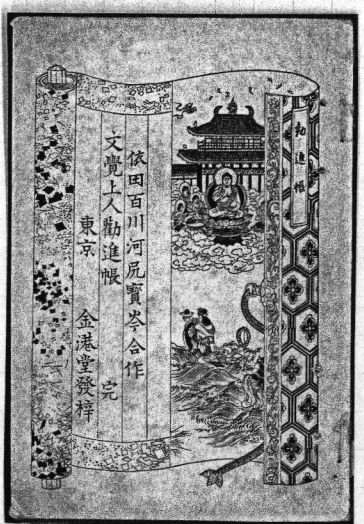 勧進帳
依田百川河尻寳岑合作
文覺上人勸進帳 完
東京 金港堂發梓